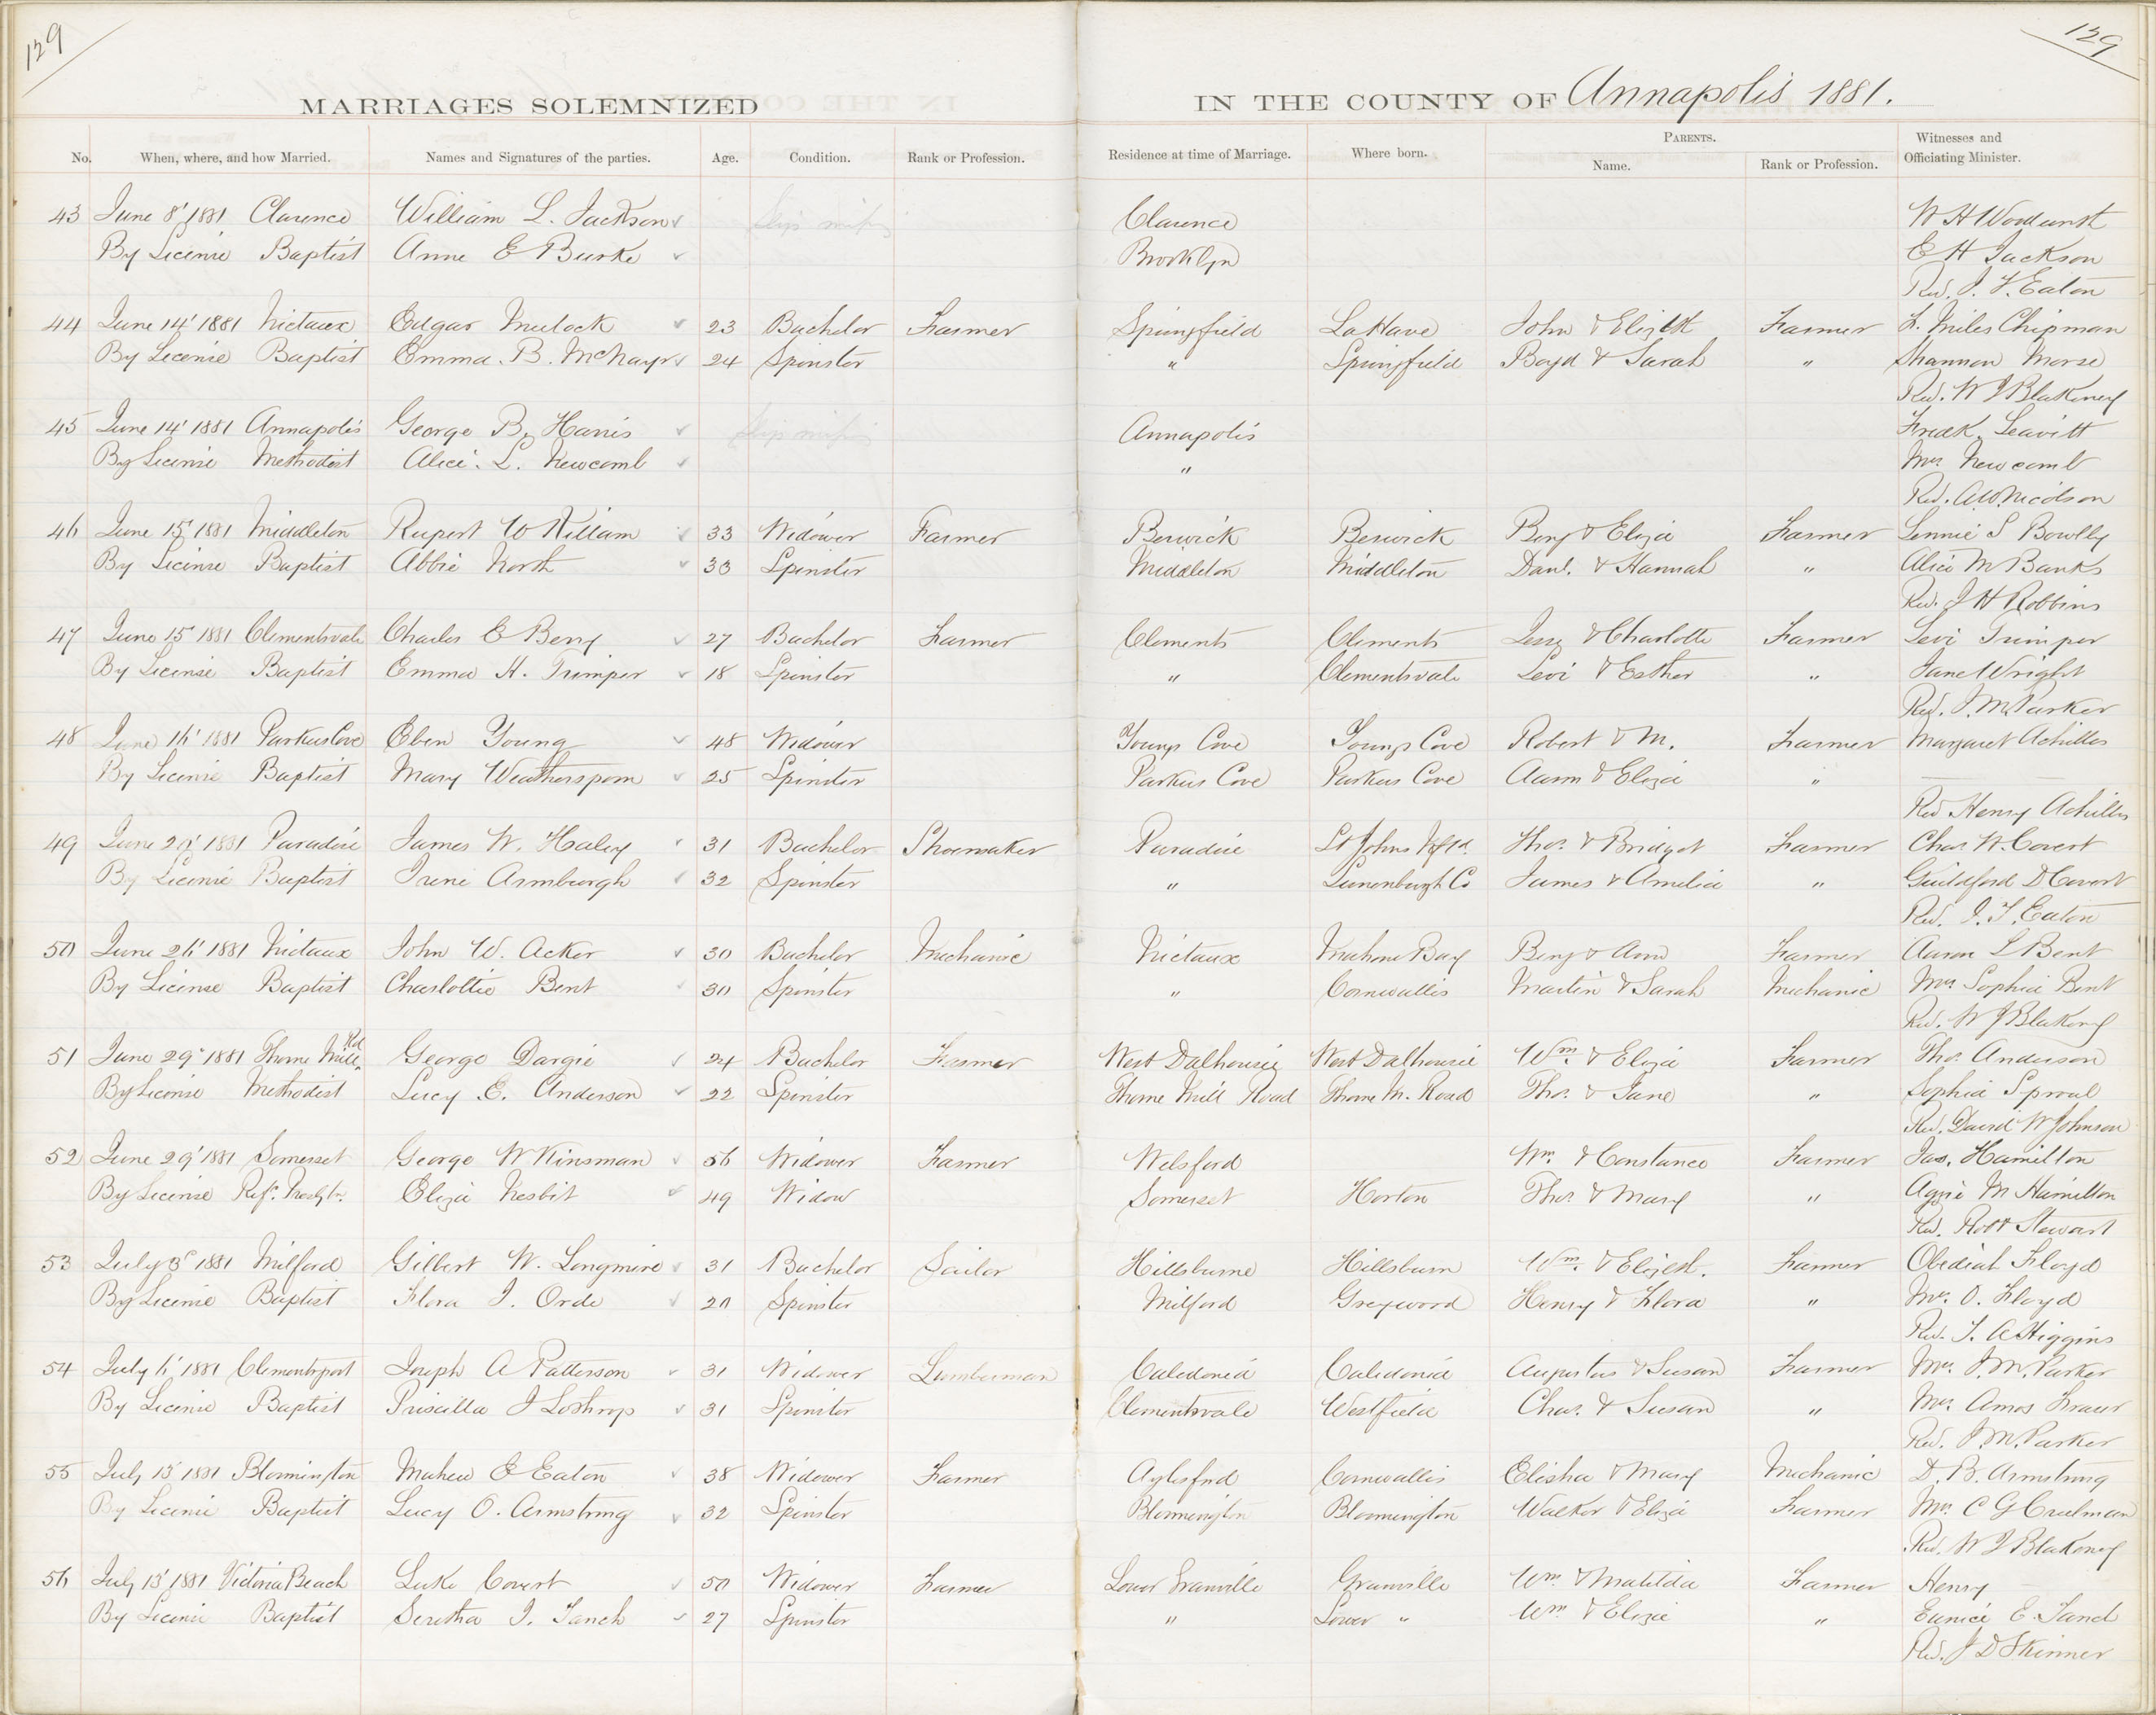 129
129
MARRIAGES SOLEMNIZED
IN THE COUNTY OF Annapolis 1881.
No. When, where, and how Married. Names and Signatures of the parties. Age. Condition. Rank or Profession. Residence at time of Marriage. Where born. PARENTS. Name. Rank or Profession. Witnesses and Officiating Minister.
43 June 8' 1881 Clarence William L. Jackson Clarence W H Woodworth
By License Baptist Anne E Burke Brooklyn E H Jackson
Rev. J. T. Eaton
44 June 14' 1881 Nictaux Edgar Mulock 23 Bachelor Farmer Springfield LaHave John & Elizth Farmer F. Miles Chipman
By License Baptist Emma. B. McNayr 24 Spinster " Springfield Boyd & Sarah " Shannon Morse
Rev. W J Blakeney
45 June 14' 1881 Annapolis George B. Harris Annapolis Fredk. Leavitt
By License Methodist Alice. L. Newcomb " Mrs Newcomb
Rev. A W Nicolson
46 June 15' 1881 Middleton Rupert W Killam 33 Widower Farmer Berwick Berwick Benj & Eliza Farmer Lennie S Bowlby
By License Baptist Abbie North 33 Spinster Middleton Middleton Danl. & Hannah " Alice M Banks
Rev. J H Robbins
47 June 15' 1881 Clementsvale Charles E Berry 27 Bachelor Farmer Clements Clements & Charlotte Farmer Levi Trimper
By License Baptist Emma H. Trimper 18 Spinster " Clementsvale Levi & Esther " Jane Wright
Rev. J. M. Parker
48 June 16' 1881 Parkers Cove Eben Young 48 Widower Youngs Cove Youngs Cove Robert & M. Farmer Margaret Achilles
By License Baptist Mary Weatherspoon 25 Spinster Parkers Cove Parkers Cove Aaron & Eliza "
Rev Henry Achilles
49 June 29' 1881 Paradise James W. Haley 31 Bachelor Shoemaker Paradise St Johns Nfld. Thos. & Bridget Farmer Chas W. Covert
By License Baptist Irene Armburgh 32 Spinster " Lunenburgh Co James & Amelia " Guildford D Covert
Rev. J. T. Eaton
50 June 26' 1881 Nictaux John W. Acker 30 Bachelor Mechanic Nictaux Mahone Bay Benj & Ann Farmer Aaron L Bent
By License Baptist Charlottie Bent 30 Spinster " Cornwallis Martin & Sarah Mechanic Mrs Sophia Bent
Rev. W J Blakeney
51 June 29' 1881 Thorne Mill Rd George Dargie 24 Bachelor Farmer West Dalhousie West Dalhousie Wm. & Eliza Farmer Thos. Anderson
By License Methodist Lucy E. Anderson 22 Spinster Thorne Mill Road Thorne M. Road Thos. & Jane " Sophia Sproul
Rev. David W Johnson
52 June 29' 1881 Somerset George W Kinsman 56 Widower Farmer Welsford Wm. & Constance Farmer Jas. Hamilton
By License Eliza Nesbit 49 Widow Somerset Horton Thos. & Mary " Aggie M Hamilton
Rev. Robt Stewart
53 July 3' 1881 Milford Gilbert W. Longmire 31 Bachelor Sailor Hillsburne Hillsburn Wm. & Elizth. Farmer Obediah Floyd
By License Baptist Flora J. Orde 20 Spinster Milford Greywood Henry & Flora " Mrs. O. Floyd
Rev. T. A Higgins
54 July 6' 1881 Clementsport Joseph A Patterson 31 Widower Lumberman Caledonia Caledonia Augustus & Susan Farmer Mrs. J. M. Parker
By License Baptist Priscilla J Lothrop 31 Spinster Clementsvale Westfield Chas. & Susan " Mrs. Amos
Rev. J. M. Parker
55 July 13' 1881 Bloomington Eaton 38 Widower Farmer Aylesford Cornwallis Elisha & Mary Mechanic D. B. Armstrong
By License Baptist Lucy O. Armstrong 32 Spinster Bloomington Bloomington Walker & Eliza Farmer Mrs. C G
Rev. W J Blakeney
56 July 13' 1881 Victoria Beach Luke Covert 50 Widower Farmer Lower Granville Granville Wm. & Matilda Farmer Henry
By License Baptist Seretha J. Tanch 27 Spinster " Lower " Wm & Elizie " Eunice E.
Rev. J D Skinner